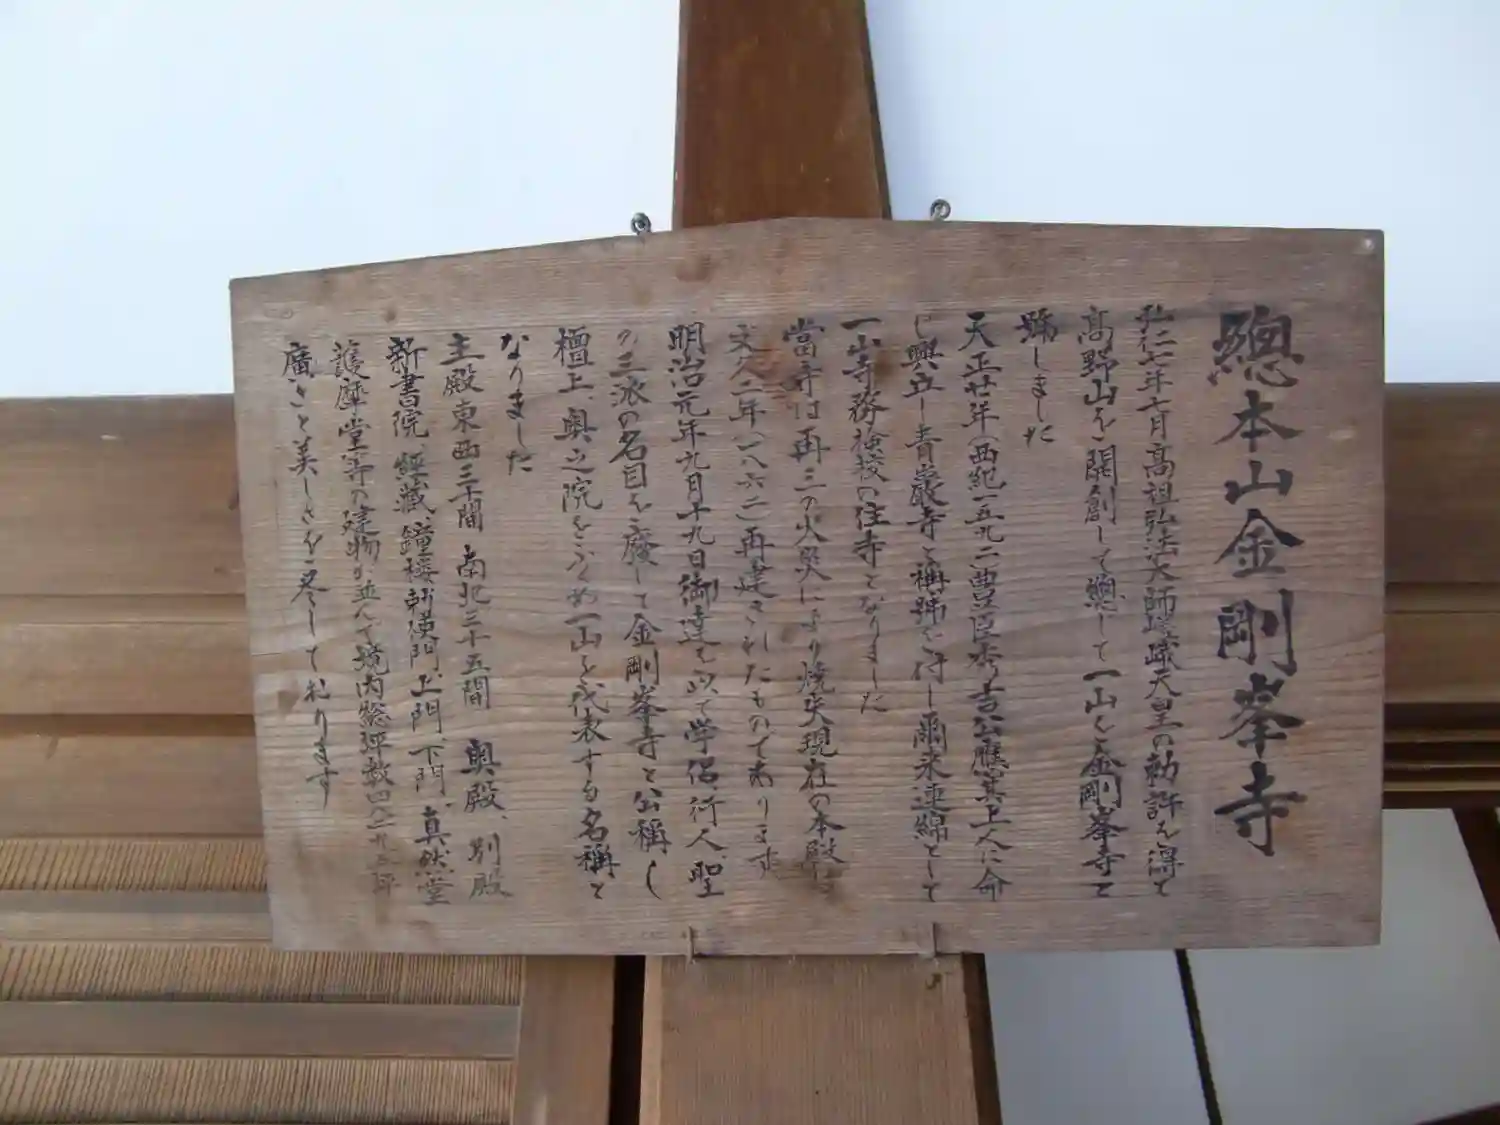 總本山金剛峯寺
弘仁七年七月高祖弘法大師嵯峨天皇の勅許を得て
高野山を開創して總じて一山を金剛峯寺と
號しました
天正廿年(西紀一五九二豊臣秀吉公應其上人に命
じ興立し青巌寺と稱號を付し爾来連綿として
一山寺務検校の住寺となりました
當寺は再三の火災により焼失現在の本殿は
文久二年(一八六二)再建されたものであります
明治元年九月十九日御達を以て学侶行人、聖
の三派の名目を廢して金剛峯寺と公稱し
檀上、奥之院をふくめ一山を代表する名稱と
なりました
主殿東西三十間 南北三十五間 奥殿、別殿
新書院、經藏、鐘楼、護摩門、上門、下門、真然堂
護摩堂等の建物が並んで境内総坪数四八二九五坪
廣さと美しさを尽して居ります